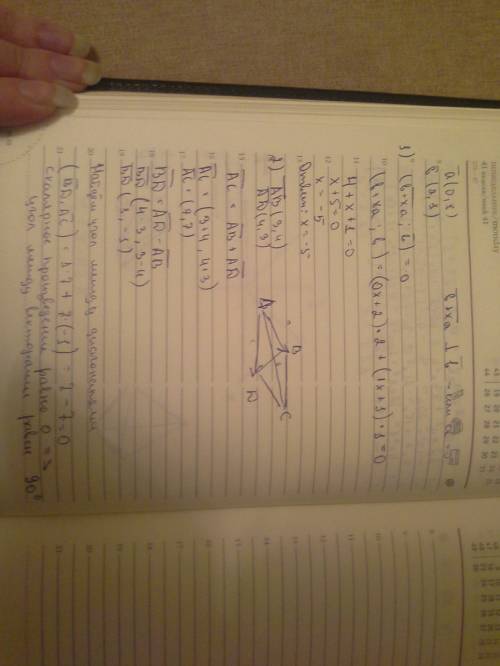 a̅(0,1)    b̅+xa̅ ⊥ b̅
b̅(2,1)
1) (b̅+xa̅; b̅) = 0
(b̅+xa̅; b̅) = (0x+2)·2 + (1x+1)·1 = 0
4+x+1 = 0
x+5=0
x = -5
Ответ: x = -5
2) AB(3,4)
AD(4,3)
B
A
C
D
AC = AB + AD
AC = (3+4, 4+3)
AC = (7,7)
BD = AD - AB
BD (4-3, 3-4)
BD (1,-1)
Найдём угол между диагоналями
(BD, AC) = 1·7 + 7·(-1) = 7-7=0
скалярное произведение равно 0 =>
угол между векторами равен 90°